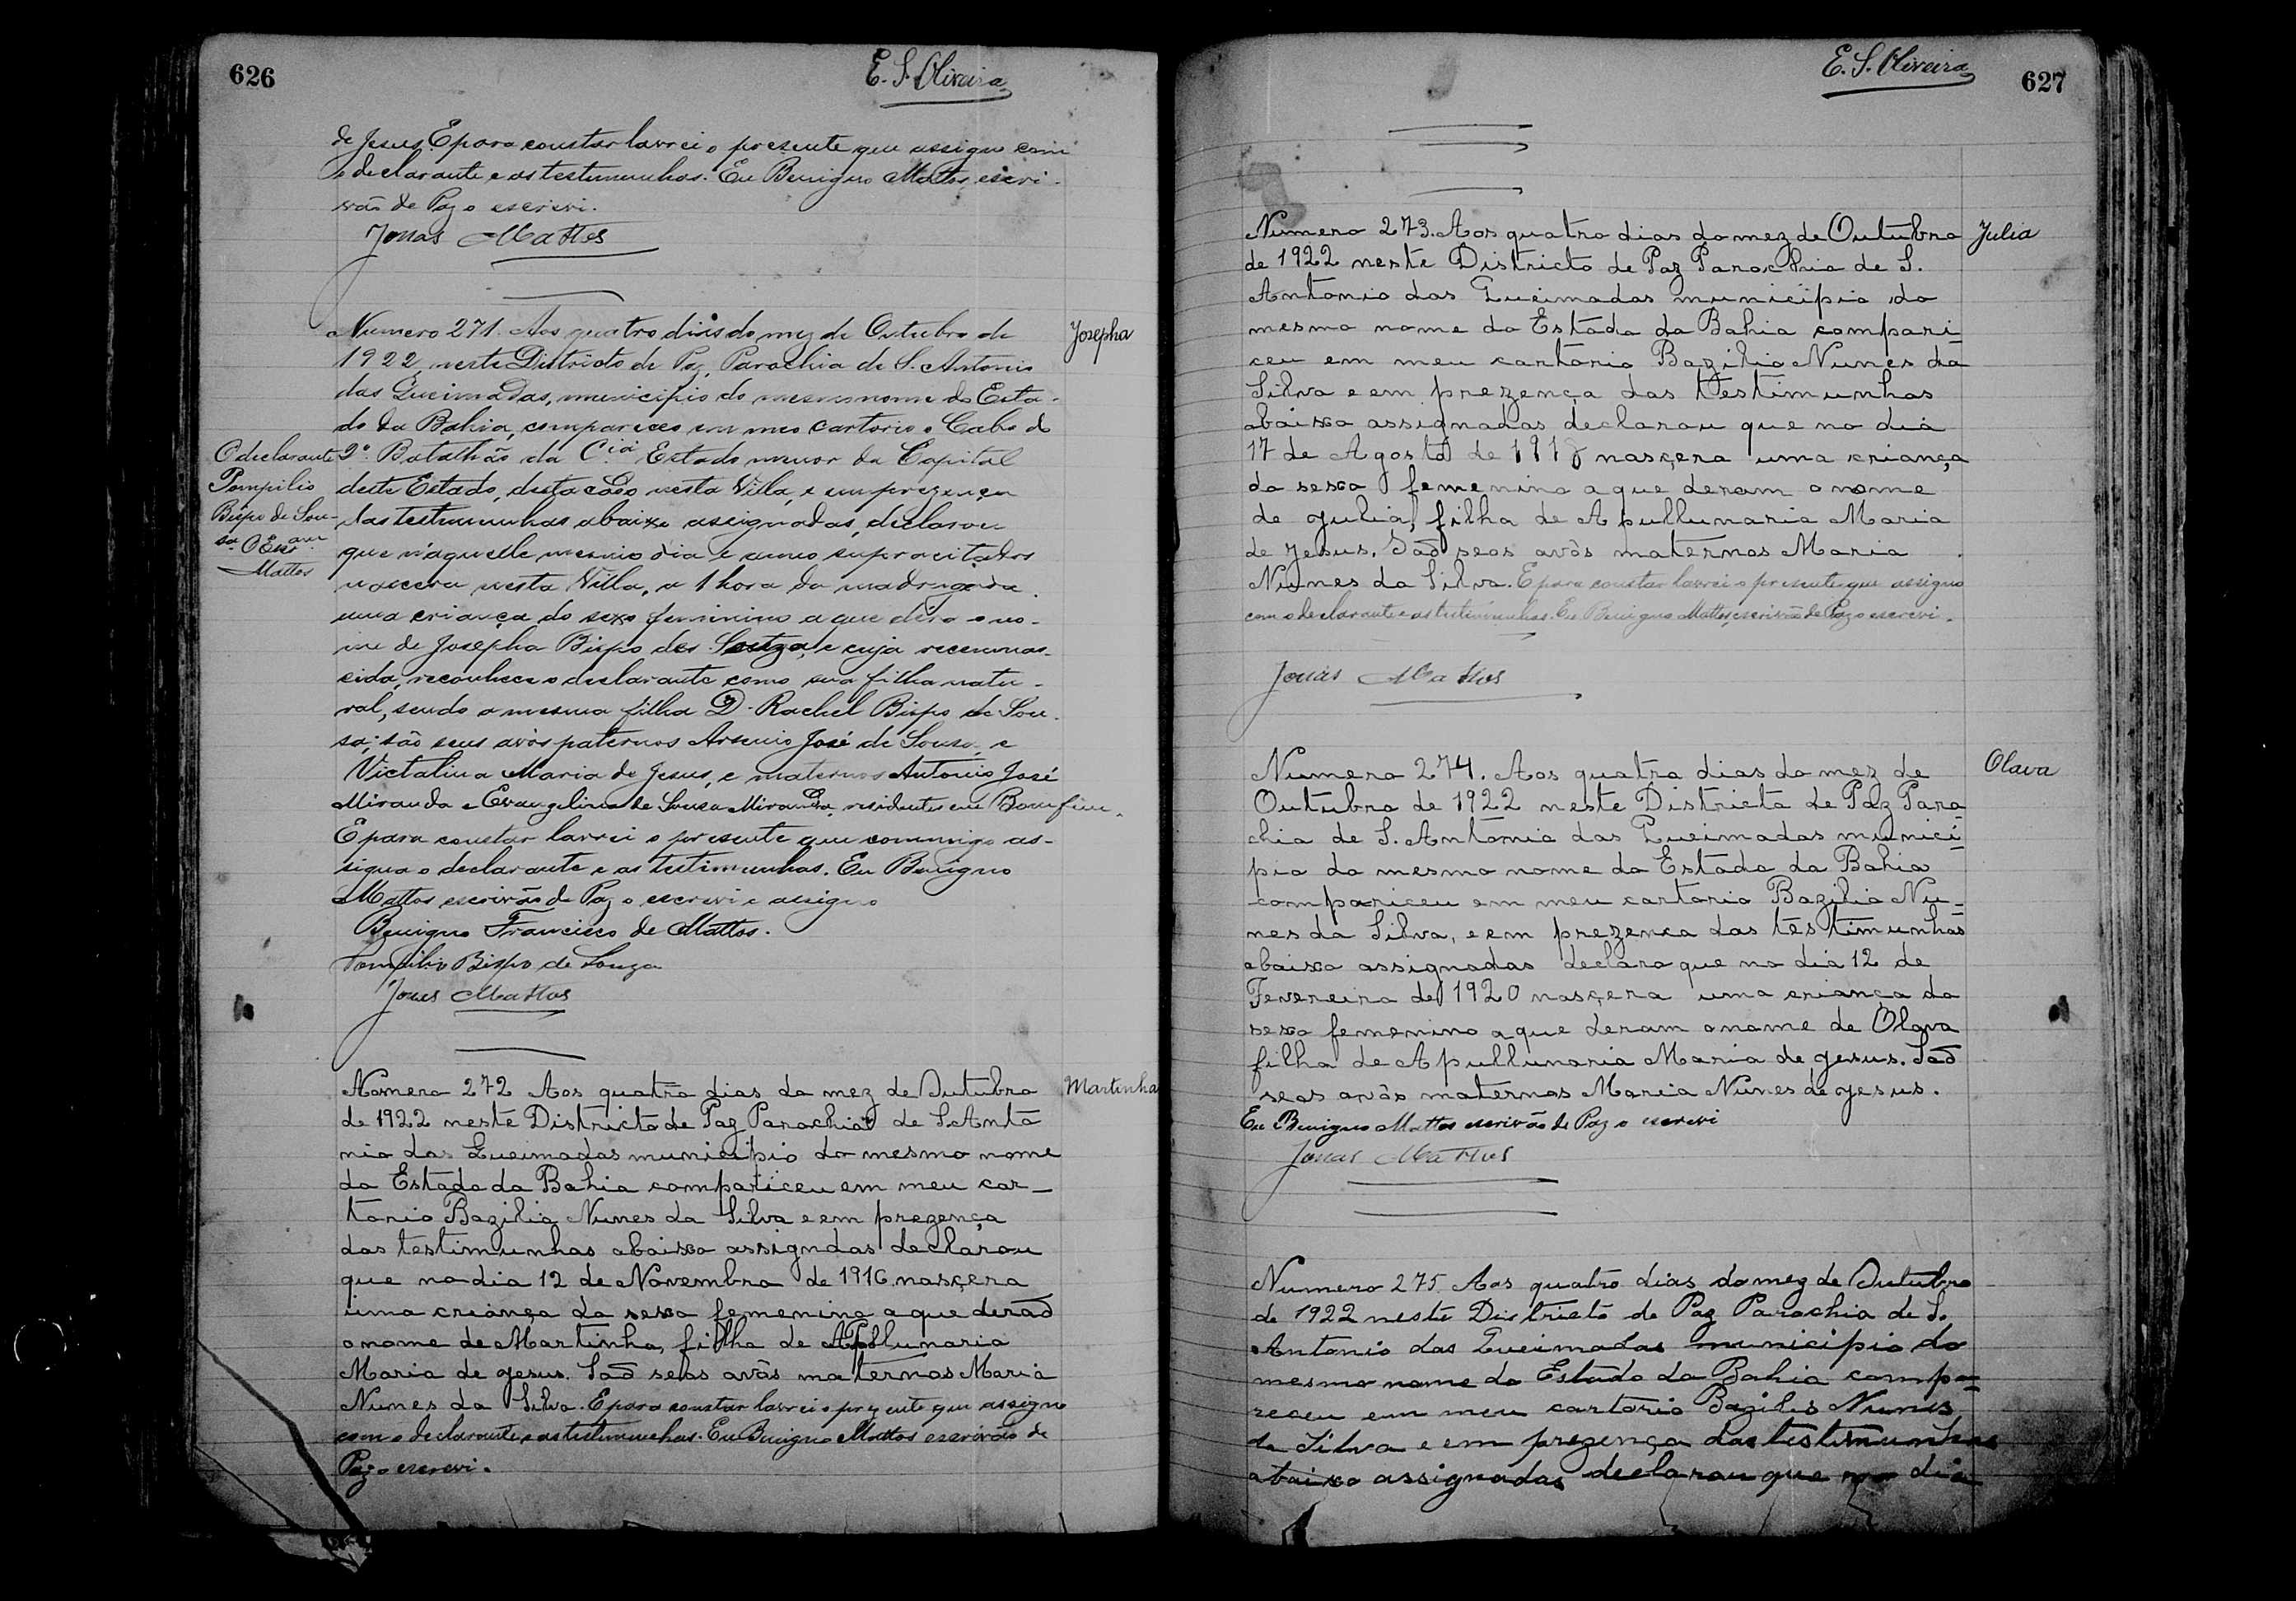 626
E. S. Oliveira
de Jesus. E para constar lavrei o presente que assigno com
o declarante e as testemunhas. Eu Benigno Mattos escri-
vão de Paz o escrevi.
Jonas Mattos
Josepha
Numero 271. Aos quatro dias do mez de Outubro de
1922, neste Districto de Paz, Parochia de S. Antonio
das Queimadas, municipio do mesmo nome do Esta-
do da Bahia, compareceo em meo cartorio o Cabo do
2º Batalhão da Cia Estado menor da Capital
deste Estado, destacado nesta Villa, e em prezença
das testemunhas abaixo assignadas, declarou
que n'aquelle mesmo dia e anno supracitados
nascera nesta Villa, a 1 hora da madrugada
uma criança do sexo feminino a que dera o no-
me de Josepha Bispo de Souza, e cuja recemnas-
cida, reconhece o declarante como sua filha natu-
ral, sendo a mesma filha D. Rachel Bispo de Sou-
sa; são seus avós paternos Arsenio José de Souza, e
Victalina Maria de Jesus, e maternos Antonio José
Miranda e Evangelina de Souza Miranda, residentes em Bomfim.
E para constar lavrei o presente que commigo as-
signa o declarante e as testimunhas. Eu Benigno
Mattos escrivão de Paz o escrevi e assigno
Benigno Francisco de Mattos.
Pompilio Bispo de Souza
Jonas Mattos
O declarante
Pompilio
Bispo de Sou-
sa. O Escr.am
Mattos
Martinha
Nomero 272 Aos quatro dias do mez de Outubro
de 1922 neste Districto de Paz Parochia de S. Anto
nio das Queimadas municipio do mesmo nome
do Estado da Bahia compariceu em meu car-
torio Bazilio Nunes da Silva e em prezença
das testimunhas abaixo assigndas declarou
que no dia 12 de Novembro de 1916 nasçera
uma criança do sexo femenino a que derão
o nome de Martinha, filha de Apollunaria
Maria de Jesus. São seos avôs maternos Maria
Nunes da Silva. E para constar lavrei o prezente que assigno
com o declarante e as testimunhas. Eu Benigno Mattos escrivão de
Paz o escrevi.
E. S. Oliveira
627
Julia
Numero 273. Aos quatro dias do mez de Outubro
de 1922 neste Districto de Paz Parochia de S.
Antonio das Queimadas municipio do
mesmo nome do Estado da Bahia compari-
ceu em meu cartorio Bazilio Nunes da
Silva e em prezença das testimunhas
abaixo assignadas declarou que no dia
17 de Agosto de 1918 nasçera uma criança
do sexo femenino a que deram o nome
de Julia, filha de Apullunaria Maria
de Jesus. São seos avôs maternos Maria
Nunes da Silva. E para constar lavrei o presente que assigno
com o declarante e as testimunhas. Eu Benigno Mattos, escrivão de Paz o escrevi.
Jonas Mattos
Olava
Numero 274. Aos quatro dias do mez de
Outubro de 1922 neste Districto de Paz Paro
chia de S. Antonio das Queimadas munici-
pio do mesmo nome do Estado da Bahia
compariceu em meu cartorio Bazilio Nu-
nes da Silva, e em prezenca das testimunhas
abaixo assignadas declaro que no dia 12 de
Fevereiro de 1920 nasçera uma criança do
sexo femenino a que deram o nome de Olava
filha de Apullunaria Maria de Jesus. São
seos avôs maternos Maria Nunes de Jesus.
Eu Benigno Mattos escrivão de Paz o escrevi
Jonas Mattos
Numero 275 Aos quatro dias do mez de Outubro
de 1922 neste Districto de Paz Parochia de S.
Antonio das Queimadas municipio do
mesmo nome do Estado da Bahia compa-
receu em meu cartorio Bazilio Nunes
da Silva e em prezença das testimunhas
abaixo assignadas declarou que no dia